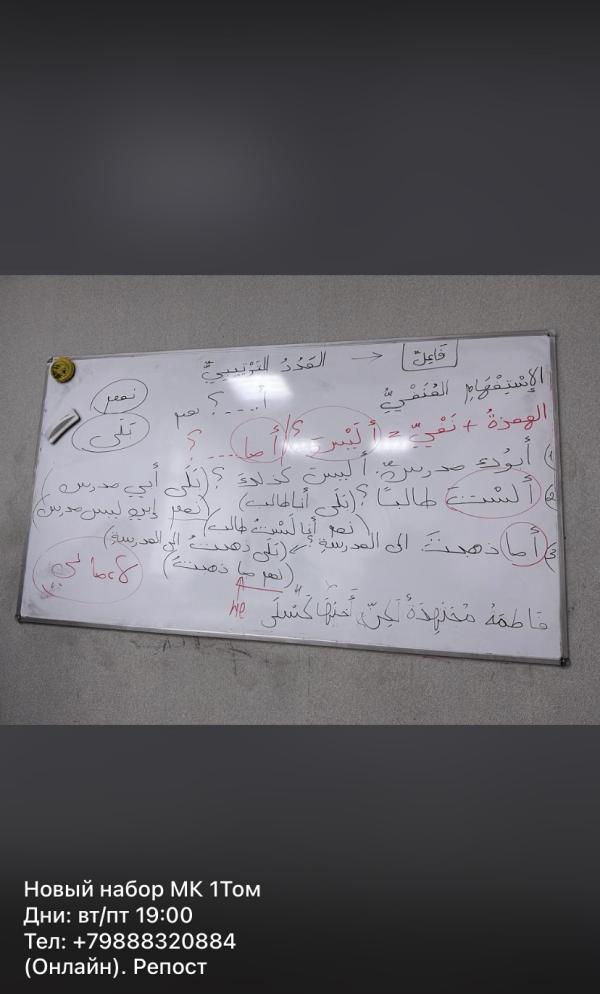 العَدَدُ التَّرْتِيبِيُّ ← فَاعِلٌ
الاِسْتِفْهَامُ المَنْفِيُّ أ....؟ نعم
نعم
بَلَى
الهمزةُ + نَفْيٌ = أَلَيْسَ؟ / أما....؟
1) أَبُوكَ مدرسٌ، أليسَ كذلك؟ (بَلَى أبي مدرس)
(نعم أبي ليس مدرس)
2) أَلَسْتَ طالبًا؟ (بَلَى أنا طالب)
(نعم أنا لَسْتُ طالب)
3) أَمَا ذهبتَ الى المدرسة؟ (بَلَى ذهبتُ الى المدرسة)
(نعم ما ذهبتُ)
لا، ما
فَاطِمَةُ مُجْتَهِدَةٌ لَكِنَّ أُخْتَهَا كَسْلَى
не
Новый набор МК 1Том
Дни: вт/пт 19:00
Тел: +79888320884
(Онлайн). Репост